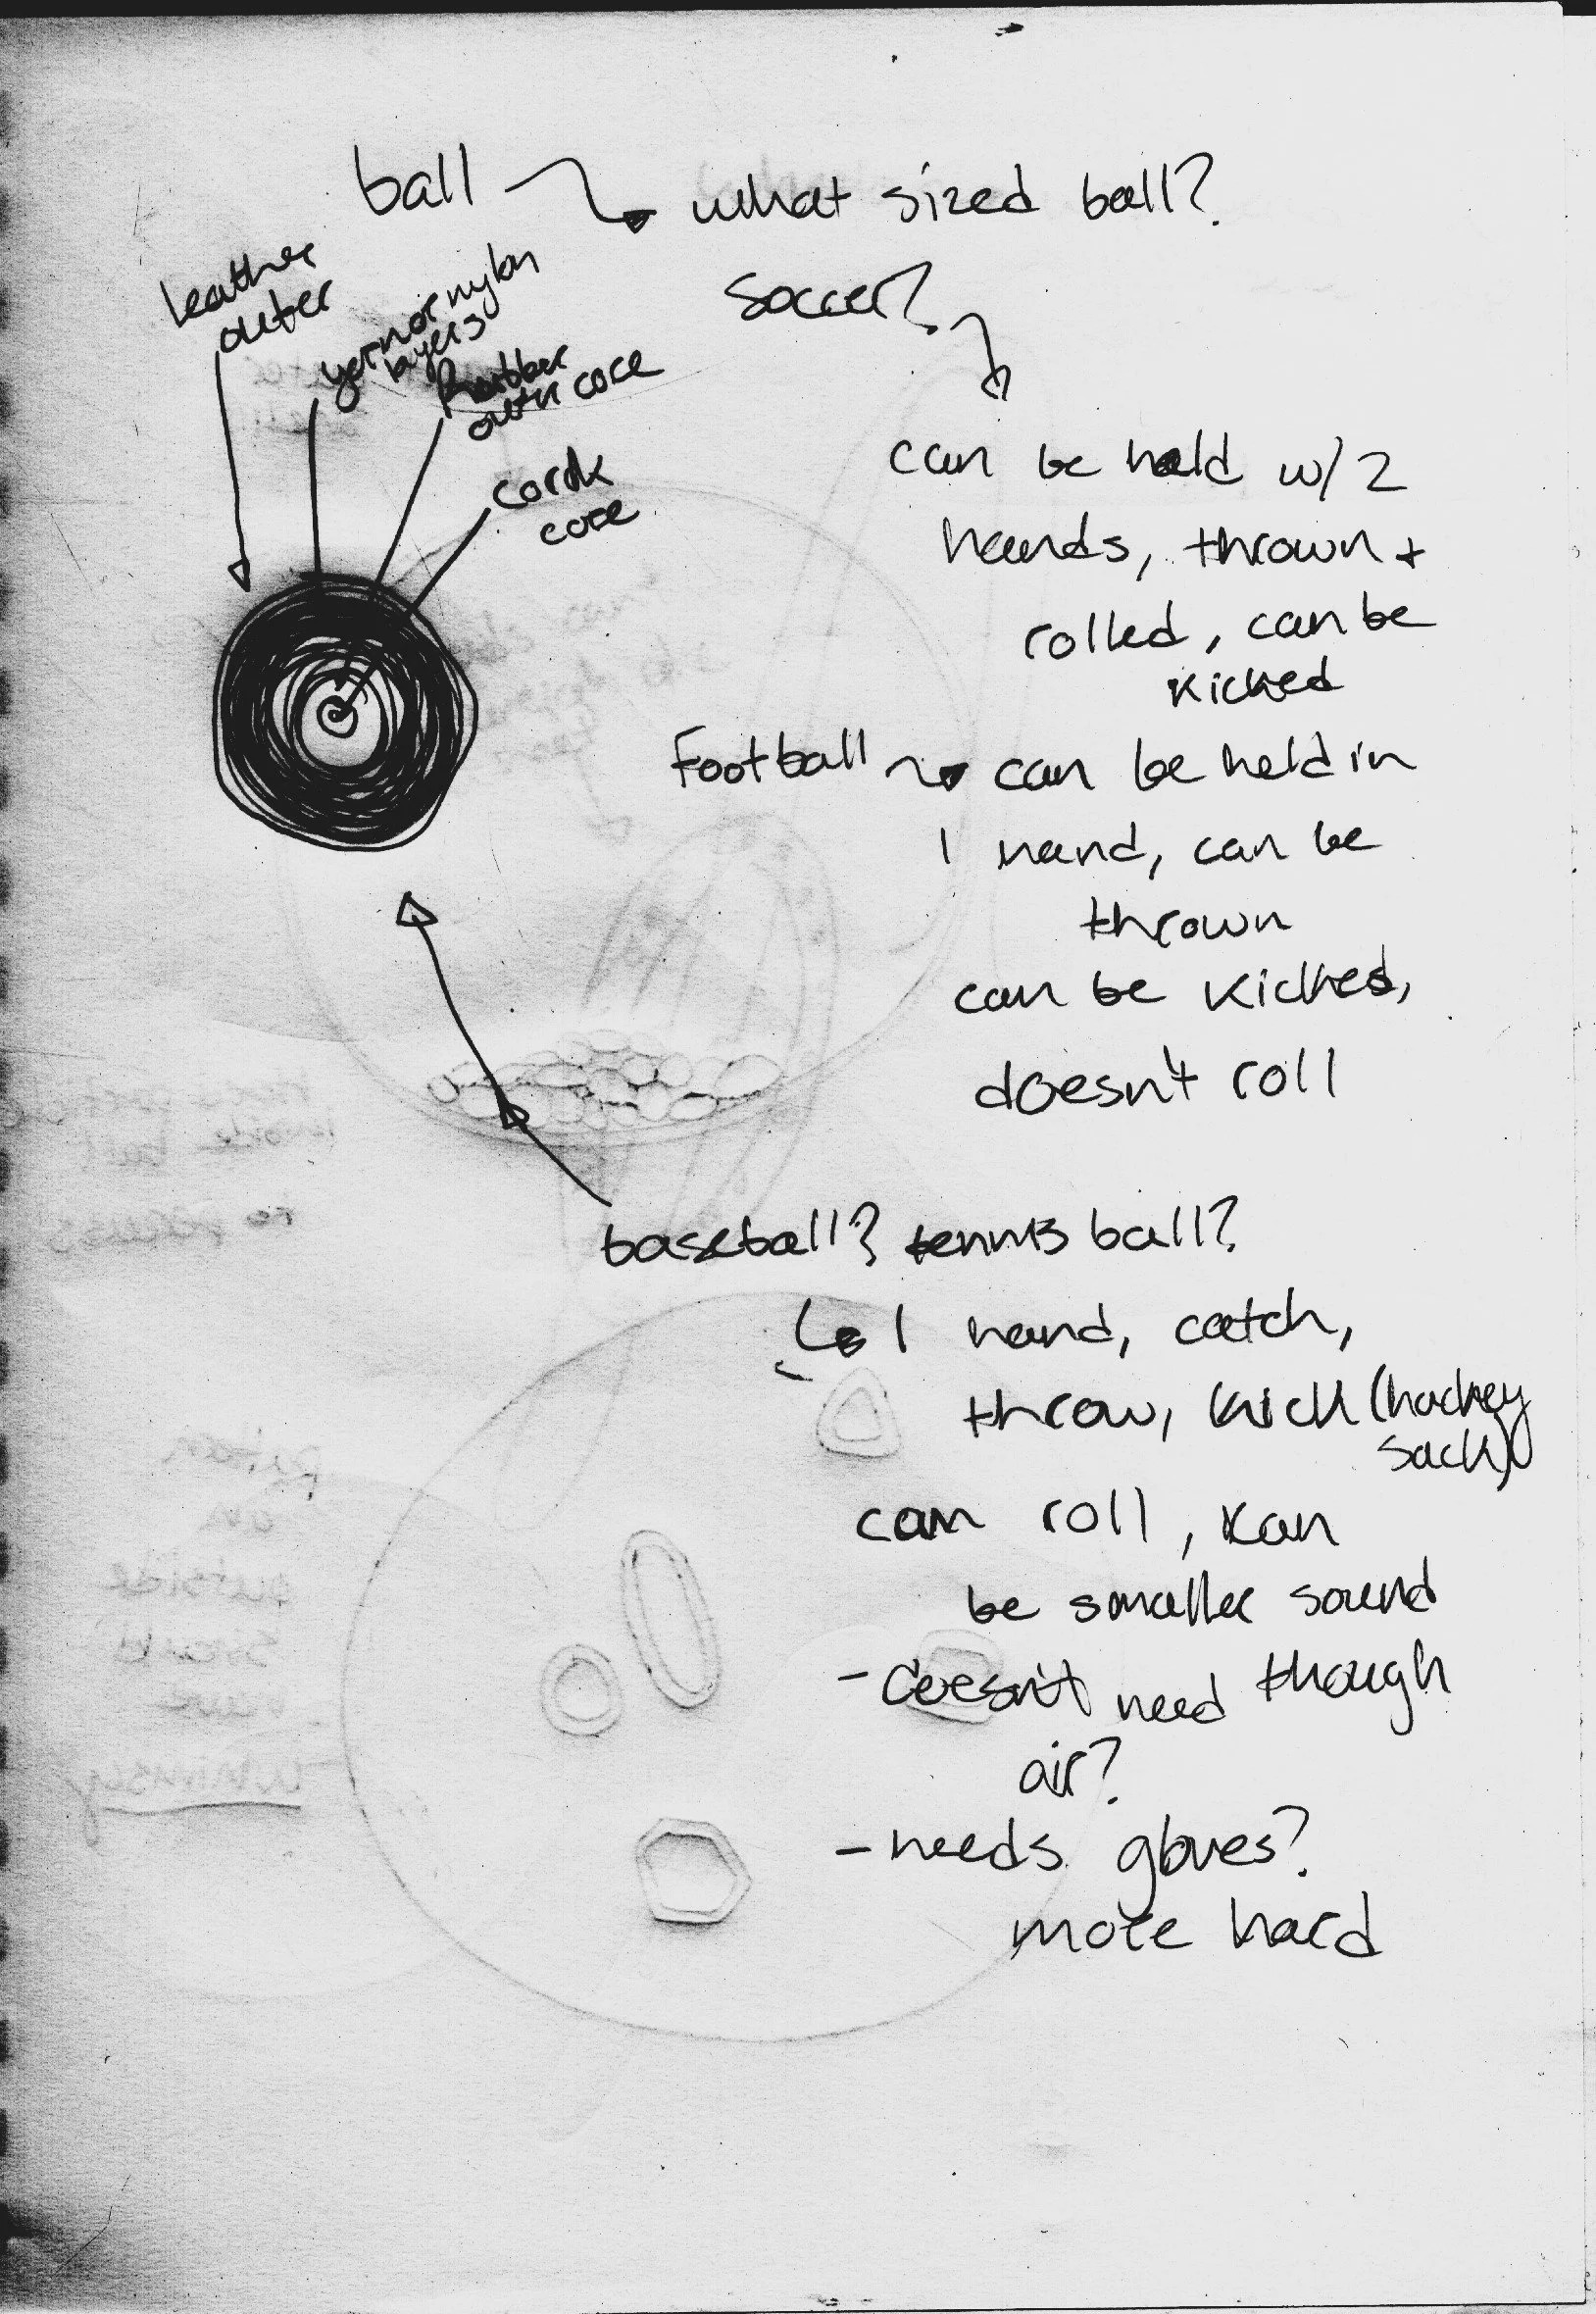 ball what sized ball?
Soccer?
leather
outer
yarn or nylon
layers
Rubber
outer core
cork
core
can be held w/ 2
hands, thrown +
rolled, can be
kicked
Football can be held in
1 hand, can be
thrown
can be kicked,
doesn't roll
baseball? tennis ball?
1 hand, catch,
throw, kick (hackey
sack)
can roll, kan
be smaller sound
- doesn't need though
air?
- needs gloves?
more hard